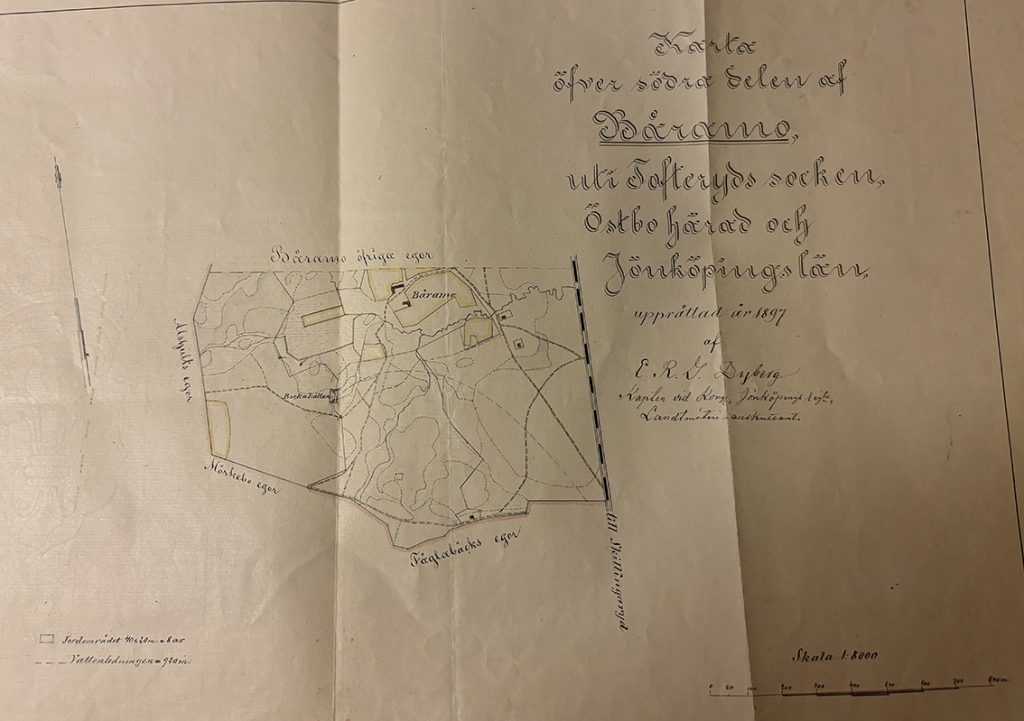 Karta
öfver södra delen af
Båramo,
uti Tofteryds socken,
Östbo härad och
Jönköpings län,
upprättad år 1897
af
E. R. G. Dyberg
Kapten vid Kongl. Jönköpings regte,
Landtmäteri-auskultant.
Båramo öfriga egor
Båramo
egor
Mörkebo egor
Fåglabäcks egor
till Skillingaryd
Jordområdet 40x20m. = 8 ar
Vattenledningen = 920 m.
Skala 1:8000
0 50 100 200 300 400 500 600 700 800 m.